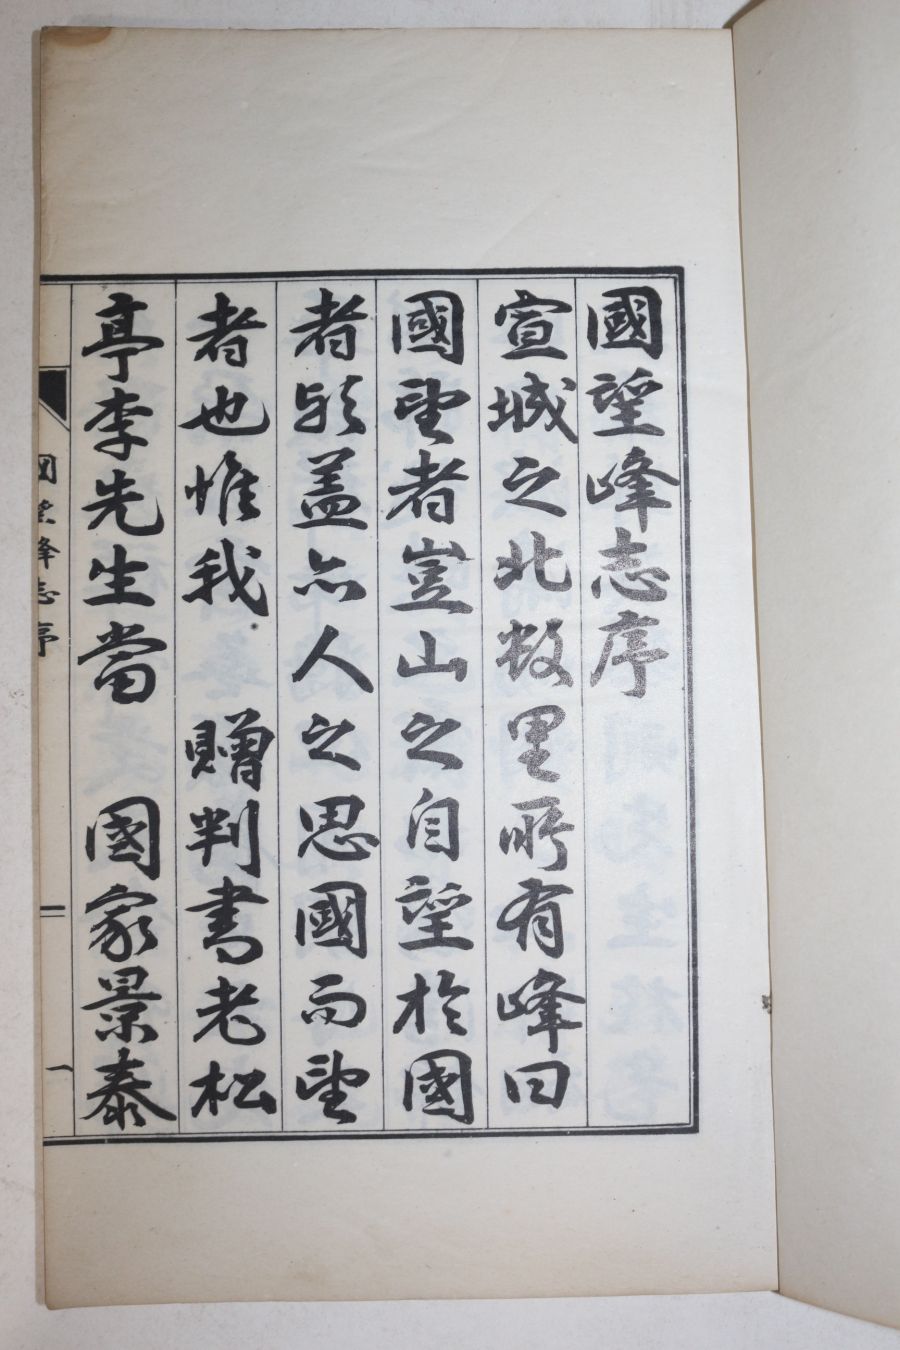 國望峰志序
宣城之北数里所有峰曰
國望者豈山之自望於國
者歟盖亦人之思國而望
者也惟我 贈判書老松
亭李先生當 國家景泰
国望峰志序
一